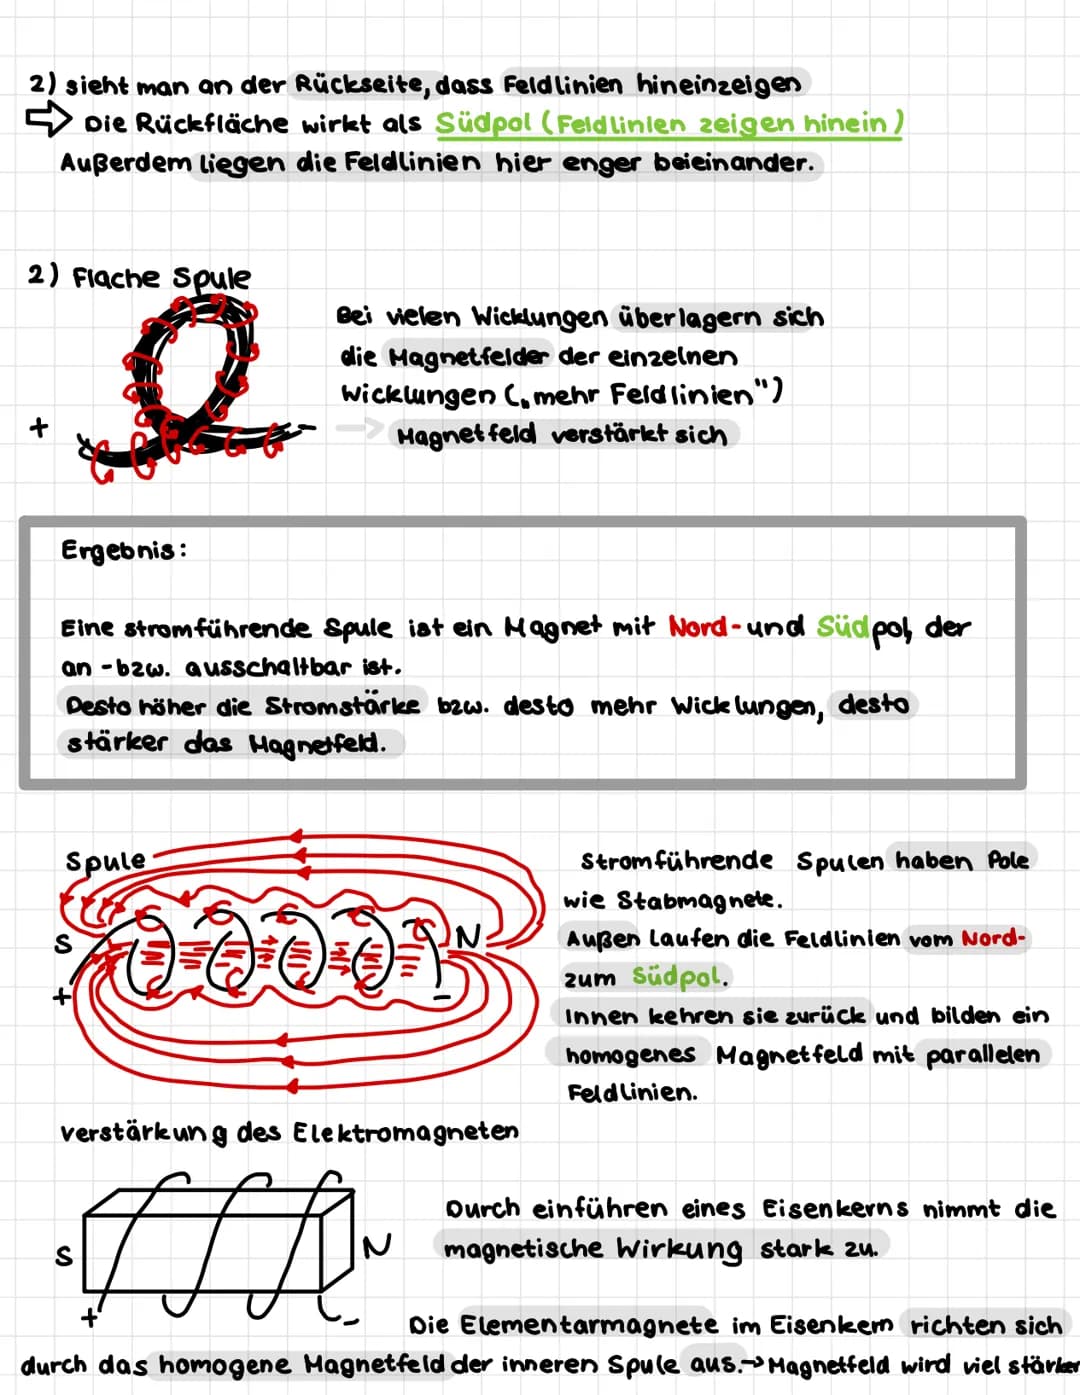 2) sieht man an der Rückseite, dass Feldlinien hineinzeigen
⇨ Die Rückfläche wirkt als Südpol (Feldlinien zeigen hinein)
Außerdem liegen die Feldlinien hier enger beieinander.
2) Flache Spule
Bei vielen Wicklungen überlagern sich
die Magnetfelder der einzelnen
Wicklungen („mehr Feldlinien")
→ Magnetfeld verstärkt sich
+
-
Ergebnis:
Eine stromführende Spule ist ein Magnet mit Nord-und Südpol, der
an-bzw. ausschaltbar ist.
Desto höher die Stromstärke bzw. desto mehr Wicklungen, desto
stärker das Magnetfeld.
Spule
S
N
+
-
Stromführende Spulen haben Pole
wie Stabmagnete.
Außen laufen die Feldlinien vom Nord-
zum Südpol.
Innen kehren sie zurück und bilden ein
homogenes Magnetfeld mit parallelen
Feldlinien.
verstärkung des Elektromagneten
S
N
+
-
Durch einführen eines Eisenkerns nimmt die
magnetische Wirkung stark zu.
Die Elementarmagnete im Eisenkern richten sich
durch das homogene Magnetfeld der inneren Spule aus.→Magnetfeld wird viel stärker